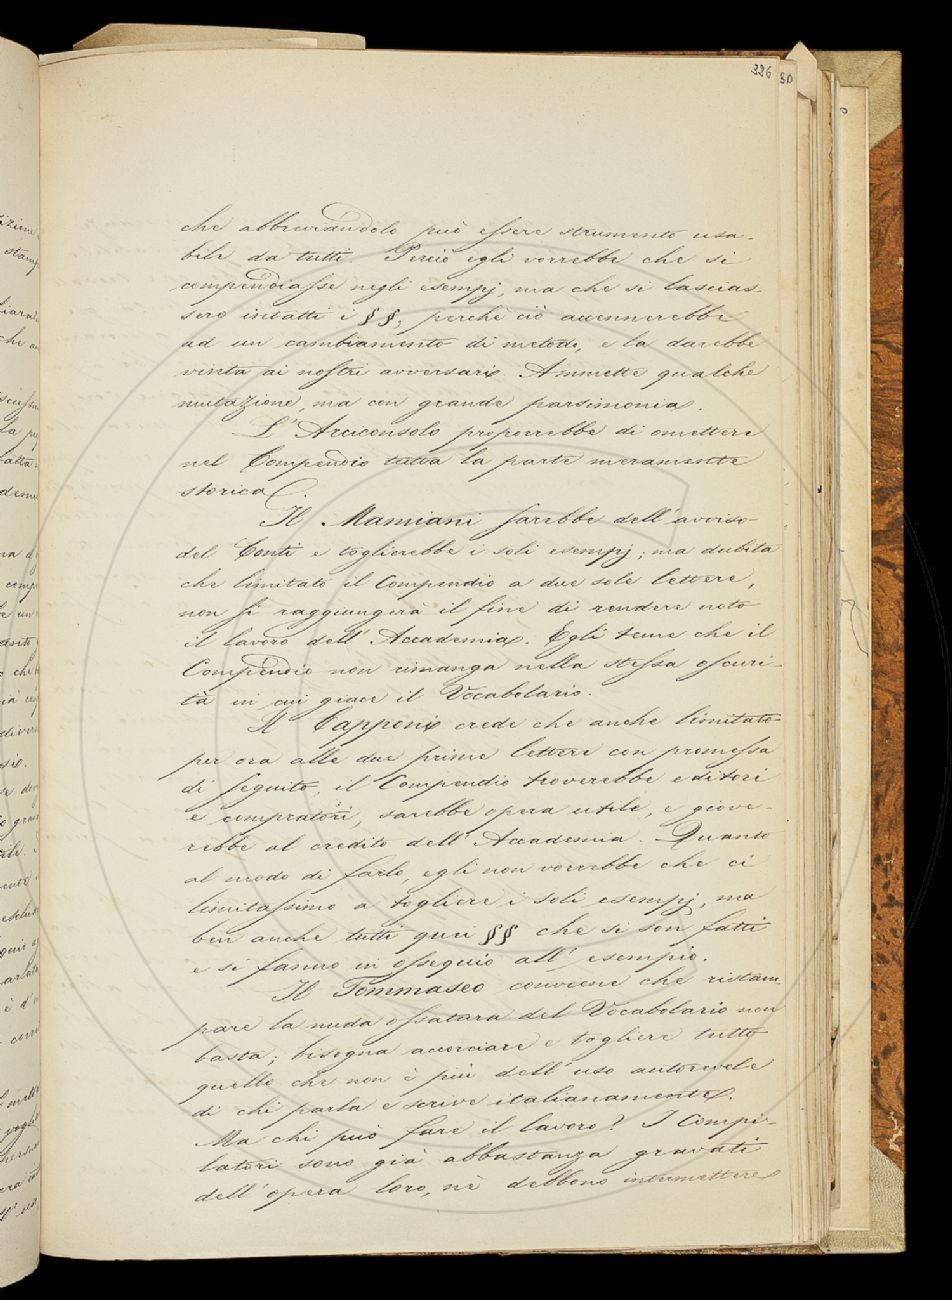 326 30
che abbreviandolo può essere strumento usa-
bile da tutti. Perciò egli vorrebbe che si
compendiasse negli esempj, ma che si lascias-
sero intatti i §§, perchè ciò accennerebbe
ad un cambiamento di metodo, e la darebbe
vinta ai nostri avversari. Ammette qualche
mutazione, ma con grande parsimonia.
L'Arciconsolo proporrebbe di omettere
nel Compendio tutta la parte meramente
storica.
Il Mamiani sarebbe dell'avviso
del Conti e toglierebbe i soli esempj; ma dubita
che limitato il Compendio a due sole lettere,
non si raggiungerà il fine di rendere noto
il lavoro dell'Accademia. Egli teme che il
Compendio non rimanga nella stessa oscuri-
tà in cui giace il Vocabolario.
Il Capponi crede che anche limitato
per ora alle due prime lettere con promessa
di seguito, il Compendio troverebbe editori
e compratori, sarebbe opera utile, e giove-
rebbe al credito dell'Accademia. Quanto
al modo di farlo, egli non vorrebbe che ci
limitassimo a togliere i soli esempj, ma
ben anche tutti quei §§ che si son fatti
e si fanno in ossequio all'esempio.
Il Tommaseo conviene che ristam-
pare la nuda ossatura del Vocabolario non
basta; bisogna accorciare e togliere tutto
quello che non è più dell'uso autorevole
di chi parla e scrive italianamente.
Ma chi può fare il lavoro? I Compi-
latori sono già abbastanza gravati
dell'opera loro, nè debbono intromettere